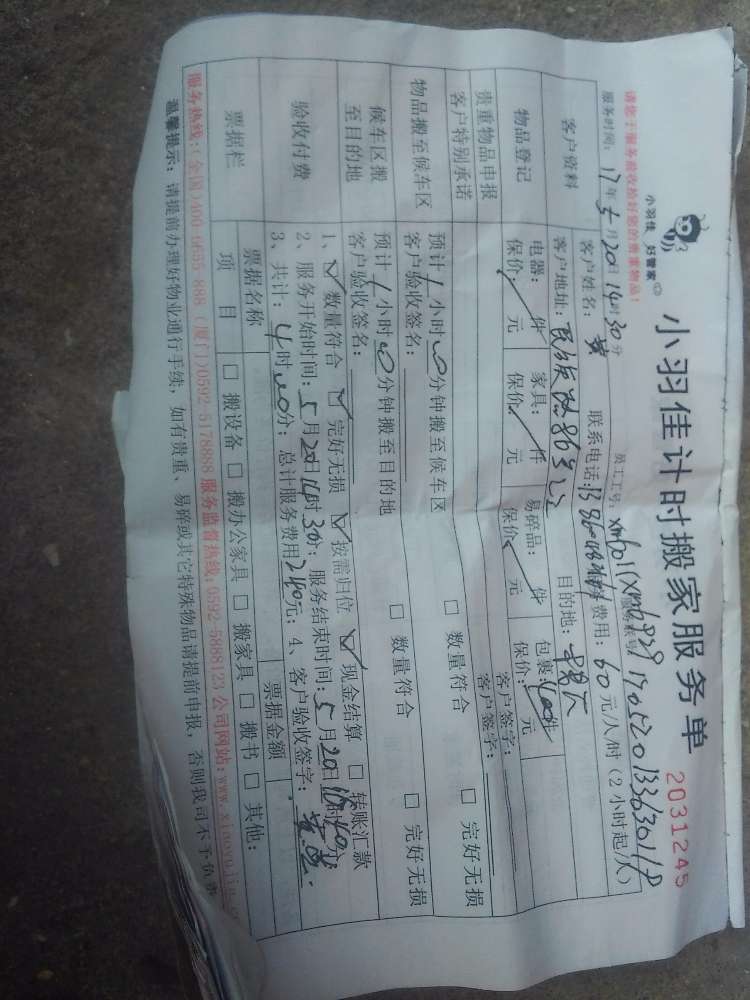 小羽佳 好管家
小羽佳计时搬家服务单 2031245
请您于服务前收拾好您的贵重物品!
员工工号: 服务账号:
服务时间: 17年5月20日14时30分
客户资料
客户姓名: 黄 联系电话: 费用: 60元/人/时 (2小时起/人)
客户地址: 目的地:
物品登记
电器: 件 家具: 件 易碎品: 件 包裹
保价: 元 保价: 元 保价: 元 保价: 元
贵重物品申报
客户特别承诺
客户签字:
客户签字:
物品搬至候车区
预计1小时00分钟搬至候车区 □ 数量符合 □ 完好无损
客户验收签名:
候车区搬至目的地
预计1小时00分钟搬至目的地 □ 数量符合 □ 完好无损
客户验收签名:
验收付费
1、☑ 数量符合 ☑ 完好无损 ☑ 按需归位 ☑ 现金结算 □ 转账汇款
2、服务开始时间:5月20日14时30分; 服务结束时间:5月20日
3、共计: 4时00分; 总计服务费用240元; 4、客户验收签字:
票据栏
票据名称 票据金额
项目 □ 搬设备 □ 搬办公家具 □ 搬家具 □ 搬书 □ 其他:
服务热线:(全国)400-6635-888 (厦门)0592-5178888 服务监督热线:0592-5888123 公司网站:
温馨提示: 请提前办理好物业通行手续, 如有贵重、易碎或其它特殊物品请提前申报, 否则我司不予负责